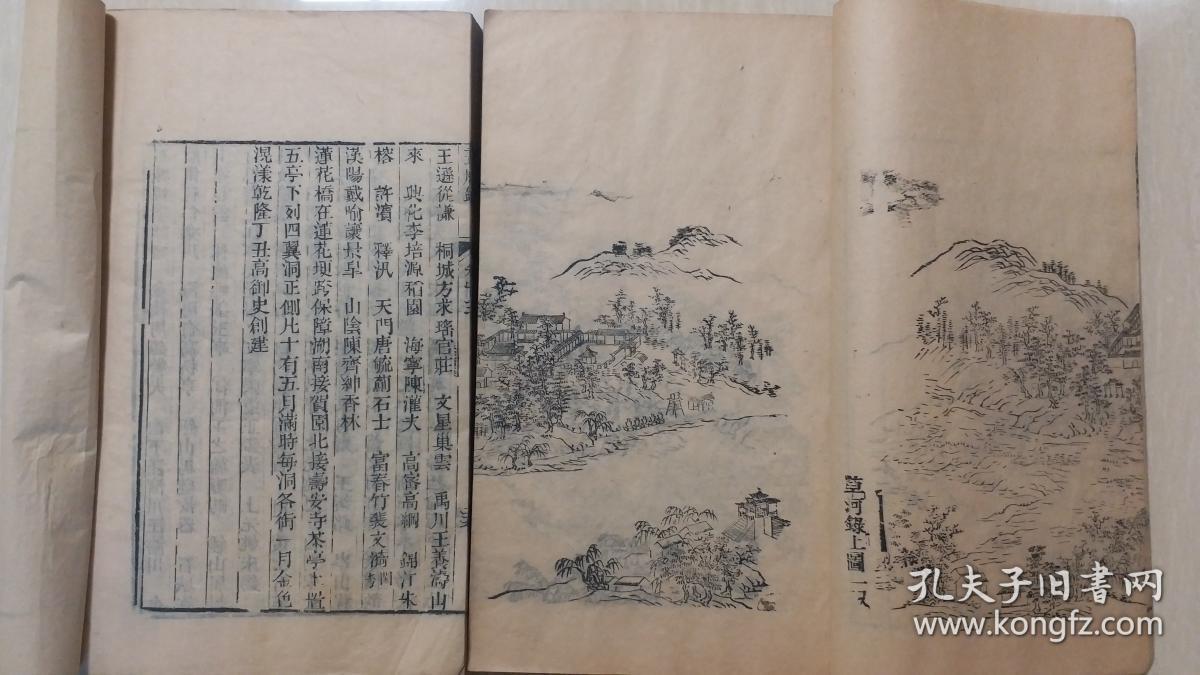 王遜從謙　桐城方求　官莊　文星巢雲　禹川王　濤山
來　興化李培源稻園　海寧陳灌夫　高密高綱　錦江朱
榕　許濱　釋汎　天門唐毓薊石士　富春竹裴文漪閩
漢陽戴喻讓景皋　山陰陳齊紳香林
蓮花橋在蓮花埂跨保障湖南接賀園北接壽安寺茶亭上置
五亭下列四翼洞正側凡十有五月滿時每洞各銜一月金色
滉漾乾隆丁丑高御史創建
草河錄上圖一
孔夫子旧书网
www.kongfz.com